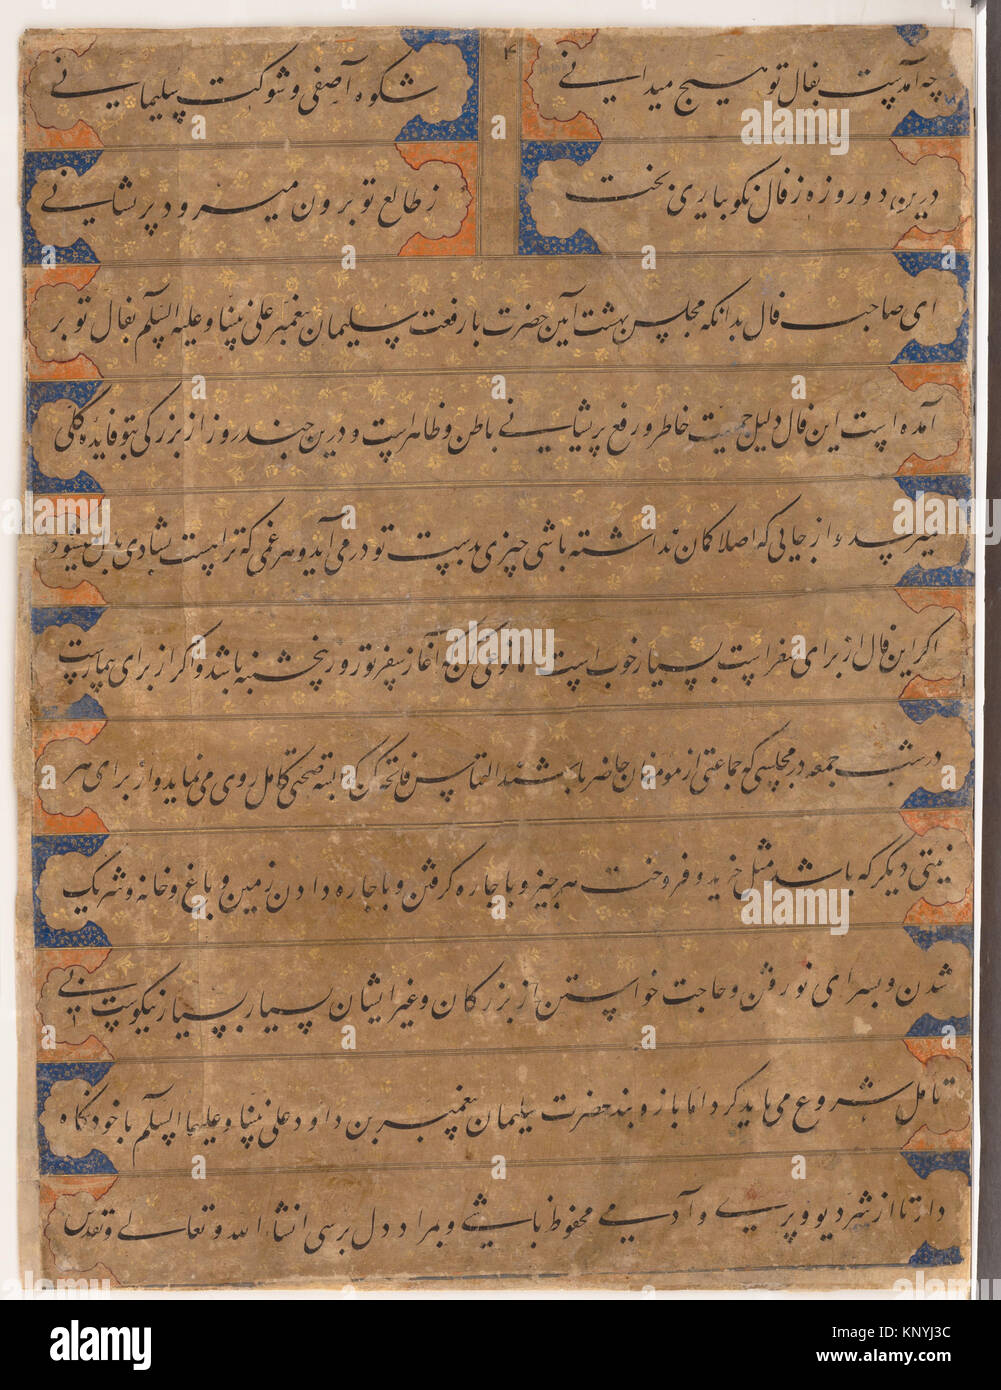 ۴
چه آمدست بفال تو هیچ میدانی شکوه آصفی و شوکت سلیمانی
درین دو روزه ز فال نکو بیاری بخت ز طالع تو برون میرود پریشانی
ای صاحب فال بدانکه مجلس بهشت آیین حضرت با رفعت سلیمان پیغمبر علی نبینا و علیه السلم بفال تو بر
آمده است این فال دلیل جمعیت خاطر و رفع پریشانی باطن و ظاهر است و درین چند روز از بزرکی بتو فایده کلی
میرسد و از جایی که اصلا کمان نداشته باشی چیزی بدست تو در می آید و هر غمی که تراست بشادی بدل میشود
اکر این فال از برای سفر است بسیار خوب است اما نوعی کن که آغاز سفر تو روز پنجشنبه باشد و اکر از برای بیمارست
در شب جمعه در مجلسی که جماعتی از مؤمنان حاضر باشند التماس فاتحه کن که البته صحتی کامل روی می نماید و از برای هر
نیتی دیگر که باشد مثل خرید و فروخت هر چیز و باجاره کرفتن و باجاره دادن زمین و باغ و خانه و شریک
شدن و بسرای نو رفتن و حاجت خواستن از بزرکان و غیر ایشان بسیار بسیار نیکوست بی
تامل شروع می باید کرد اما بازوبند حضرت سلیمان پیغمبر بن داود علی نبینا و علیهما السلم با خود نکاه
دار تا از شر دیو و پری و آدمی محفوظ باشی و بمراد دل برسی انشاء الله و تعالی و تقدس
alamy
KNYJ3C
www.alamy.com